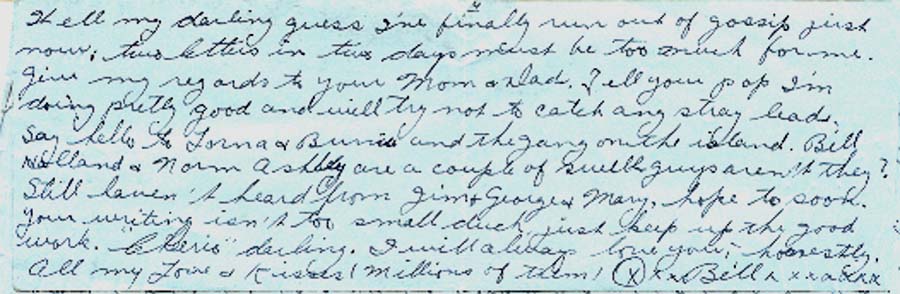 Well my darling guess I've finally run out of gossip just
now; two letters in two days must be too much for me.
Give my regards to your Mom & Dad. Tell your pop I'm
doing pretty good and will try not to catch any stray leads.
Say hello to Lorna & and the gang on the island. Bill
Holland & Norm Ashley are a couple of swell guys aren't they?
Still haven't heard from Jim & George & Mary, hope to soon.
Your writing isn't too small duck, just keep up the good
work. "Cherio" darling. I will always love you, honestly.
All my Love & Kisses! Millions of them! (X) x x Bill x x x x x x